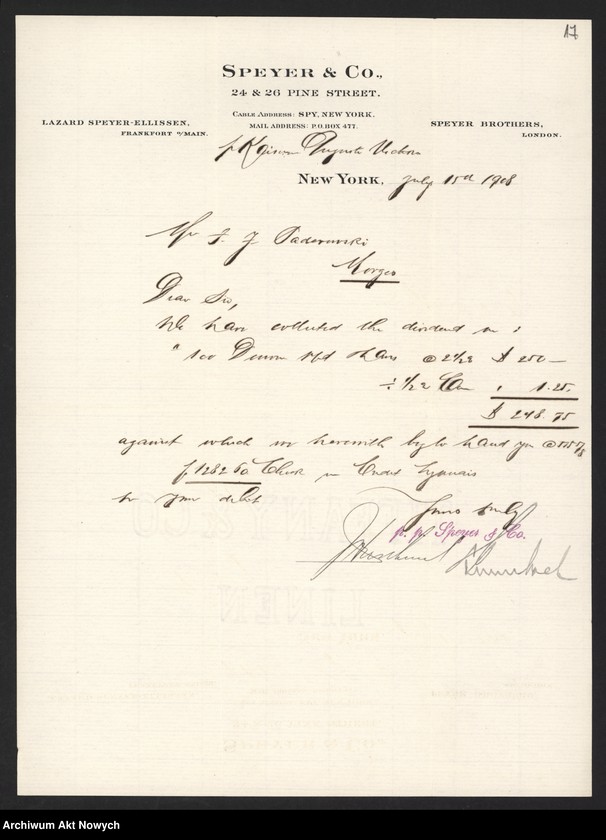 17
SPEYER & CO.,
24 & 26 PINE STREET.
CABLE ADDRESS: SPY, NEW YORK.
MAIL ADDRESS: P.O. BOX 477.
LAZARD SPEYER-ELLISSEN,
FRANKFORT o/MAIN.
SPEYER BROTHERS,
LONDON.
Auguste Victoria
NEW YORK, July 1908
Mr I. J. Paderewski
Morges
Dear Sir,
We have collected the dividend on :
100 pfd shares @ 2 1/2 $ 250 —
1.25.
$ 248.75
against which we herewith beg to hand you
f. 1282 60 Check on Credit Lyonnais
to your debit
Yours truly
p. p. Speyer & Co.
LINEN
Archiwum Akt Nowych